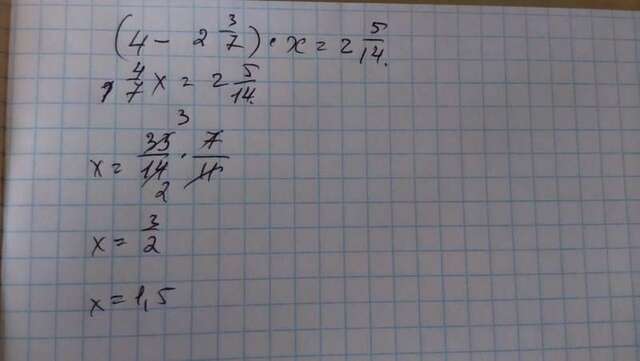 (4 - 2 3/7) · x = 2 5/14.
1 4/7 x = 2 5/14.
x = 33/14 · 7/11
3
2
x = 3/2
x = 1,5